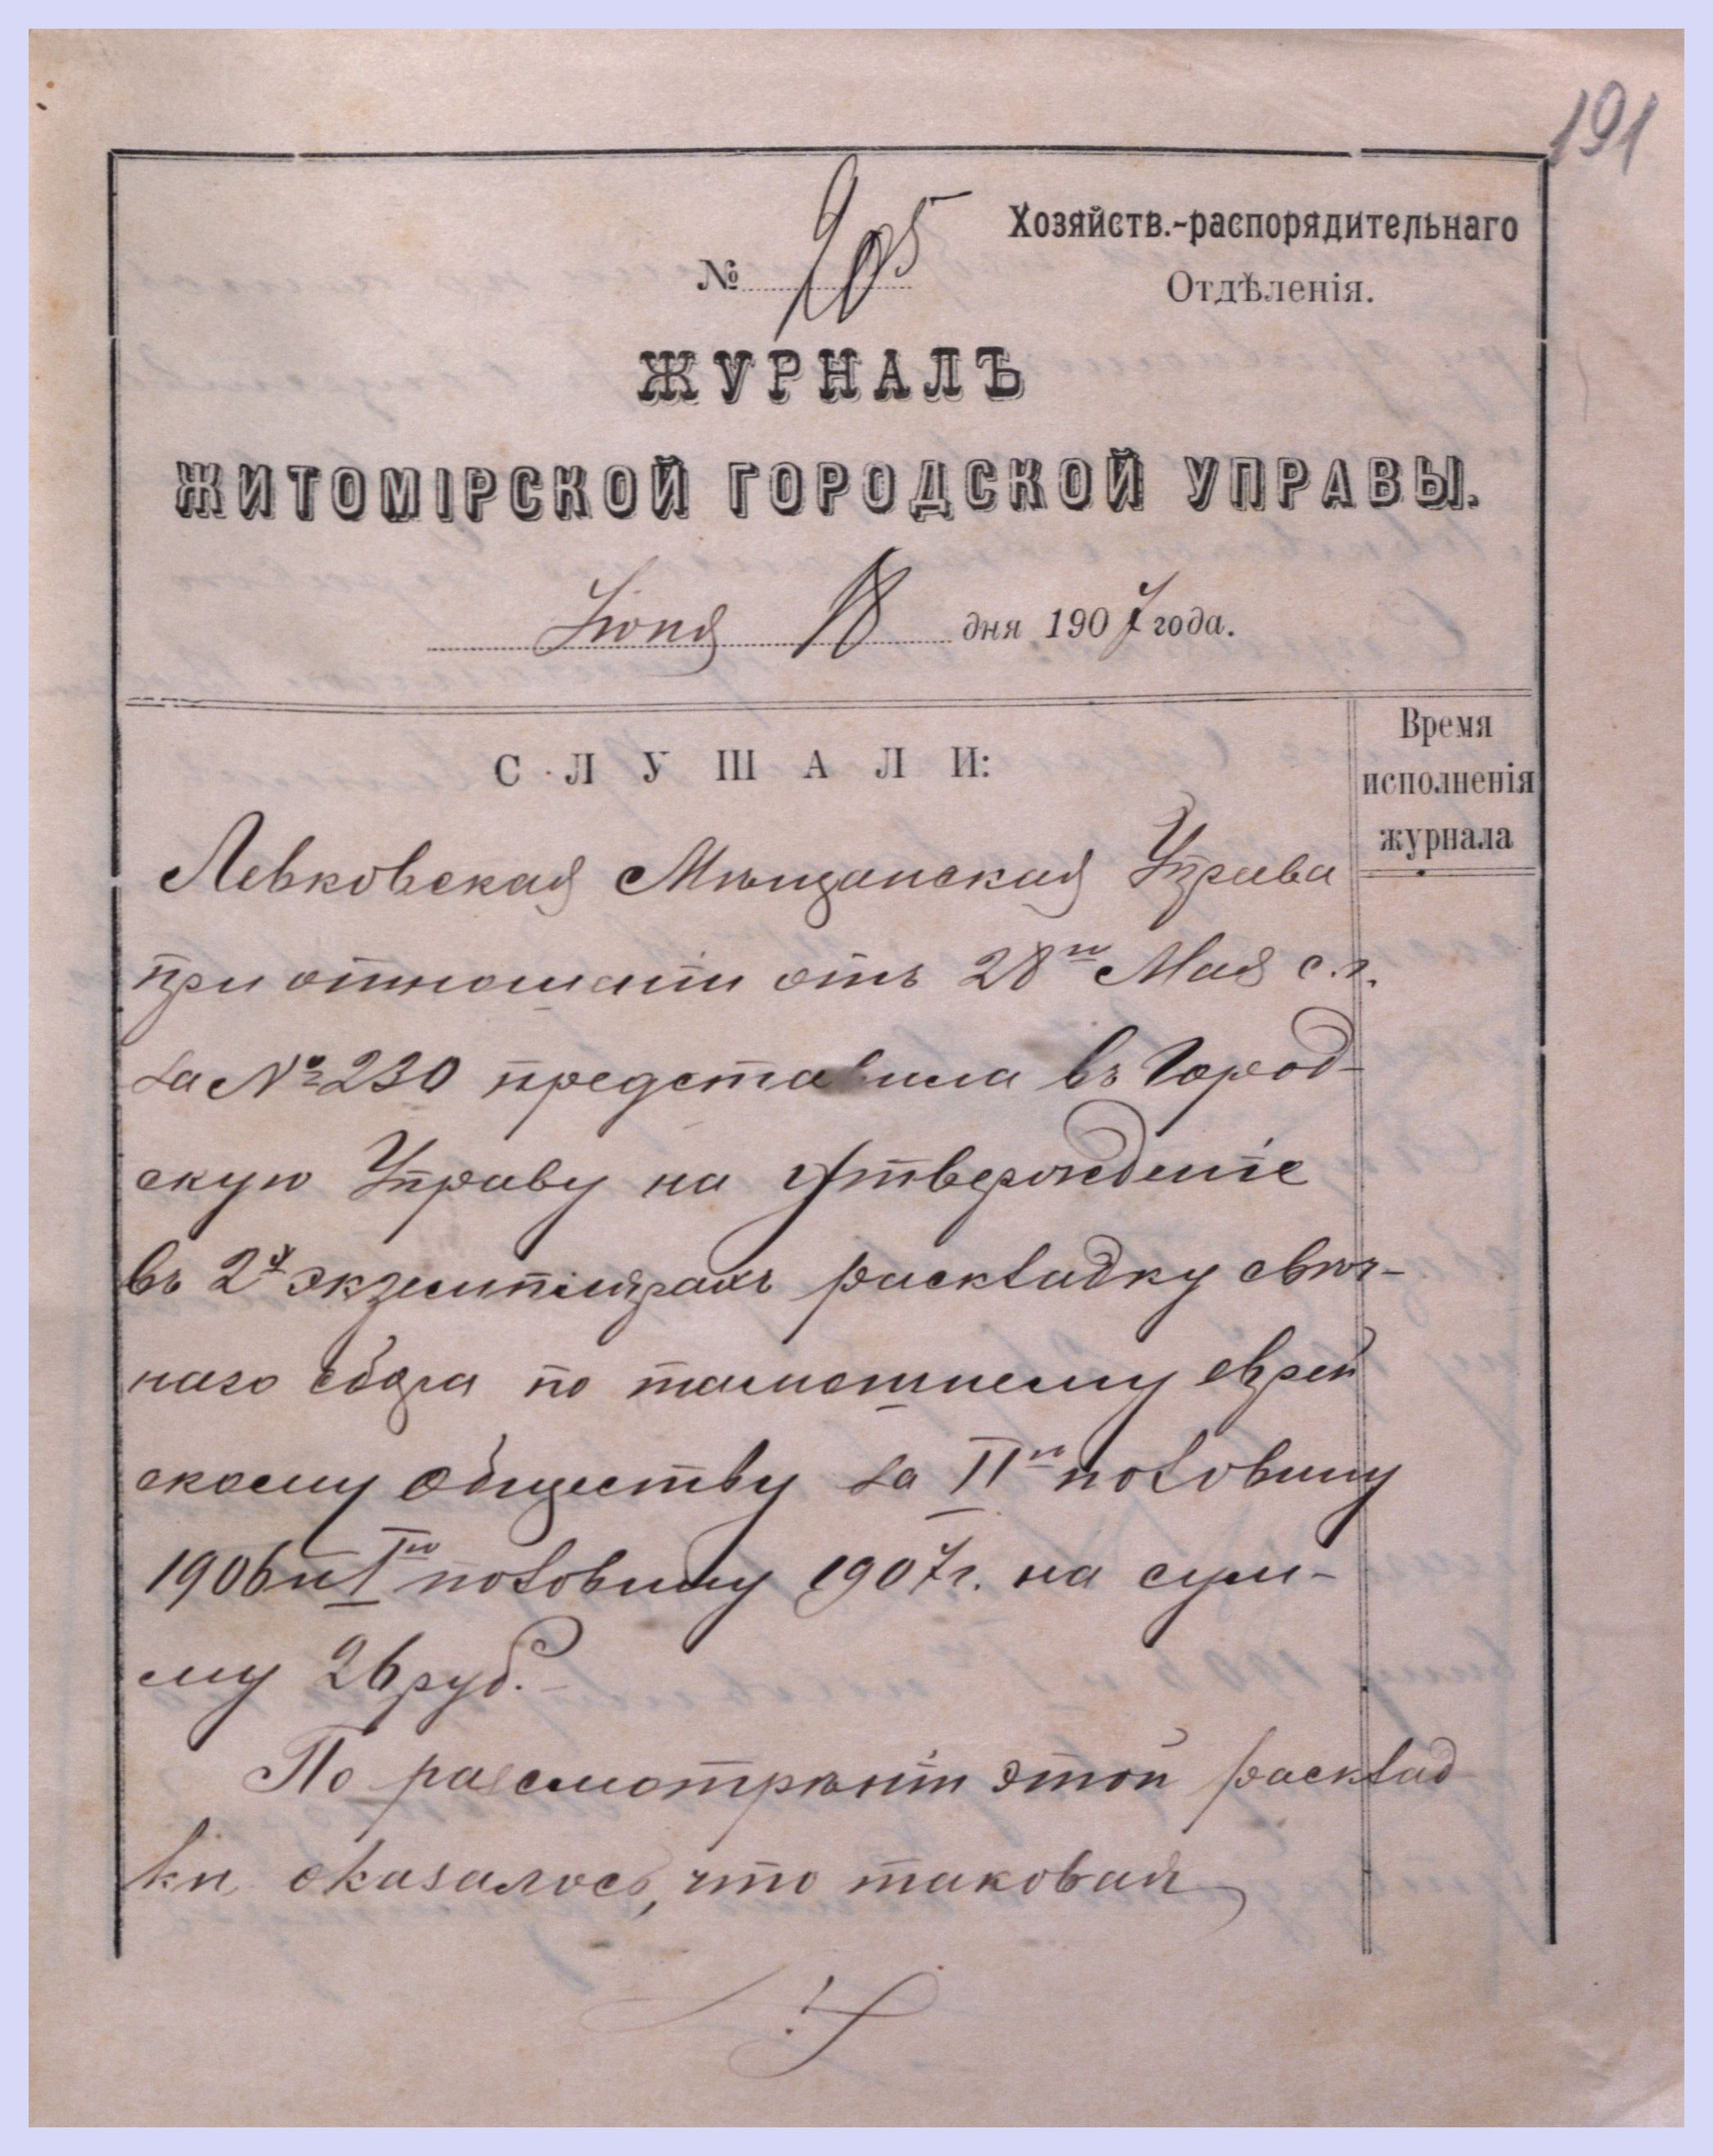 191
№ 905
Хозяйств.-распорядительнаго
Отдѣленія.
ЖУРНАЛЪ
ЖИТОМІРСКОЙ ГОРОДСКОЙ УПРАВЫ.
Іюня 18 дня 1907 года.
СЛУШАЛИ:
Время
исполненія
журнала
Левковская Мѣщанская Управа
при отношеніи отъ 28го Мая с.г.
за № 230 представила въ Город-
скую Управу на утвержденіе
въ 2х экземплярахъ раскладку свѣч-
наго сбора по тамошнему еврей
скому обществу за IIю половину
1906 и Iю половину 1907 г. на сум-
му 26 руб.
По разсмотрѣніи этой расклад
ки оказалось, что таковая